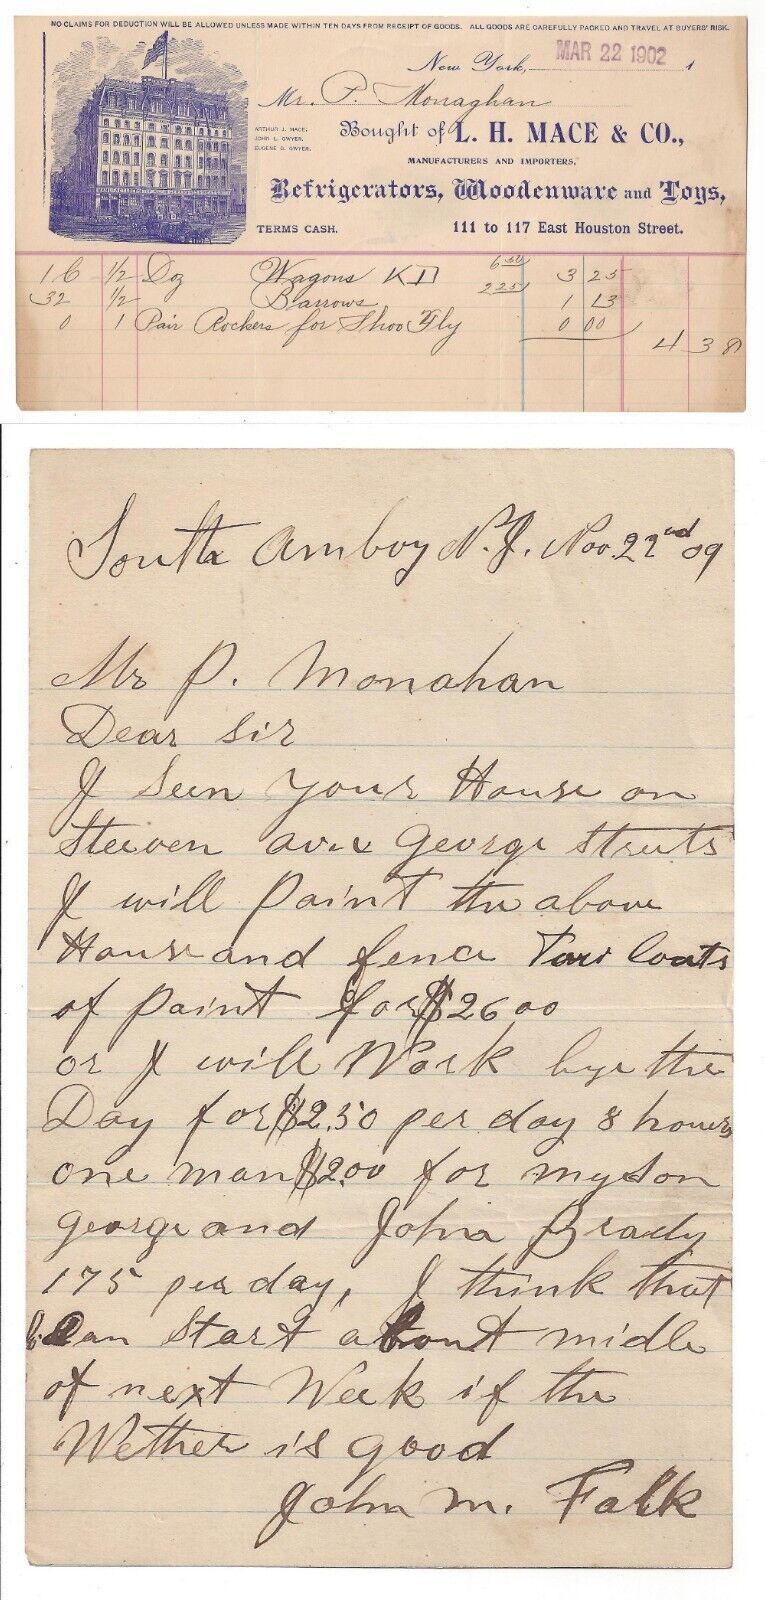 NO CLAIMS FOR DEDUCTION WILL BE ALLOWED UNLESS MADE WITHIN TEN DAYS FROM RECEIPT OF GOODS. ALL GOODS ARE CAREFULLY PACKED AND TRAVEL AT BUYERS' RISK.
New York, MAR 22 1902 1
Mr. P. Monaghan
ARTHUR J. MACE.
JOHN L. GWYER.
EUGENE G. GWYER.
Bought of L. H. MACE & CO.,
MANUFACTURERS AND IMPORTERS.
Refrigerators, Woodenware and Toys,
TERMS CASH. 111 to 117 East Houston Street.
16 1/2 Doz Wagons KD 6 50 3 25
32 1/2 Barrows 2 25 1 13
0 1 Pair Rockers for Shoo Fly 0 00
4 38
South Amboy N.J. Nov 22nd 09
Mr P. Monahan
Dear Sir
I Seen your House on
Steeven ave George Streets
I will Paint the above
House and fence Coats
of Paint for $26 00
or I will Work bye the
Day for $2.50 per day 8 hours
one man $2.00 for my son
George and John Brady
175 per day, I think that
Can Start about midle
of next Week if the
Wether is good
John M. Falk